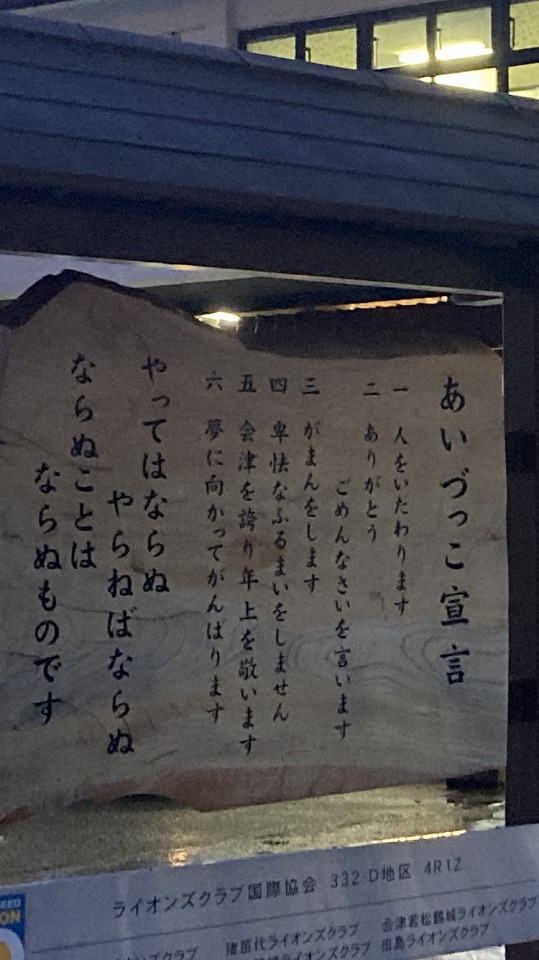 あいづっこ宣言
一 人をいたわります
二 ありがとう
ごめんなさいを言います
三 がまんをします
四 卑怯なふるまいをしません
五 会津を誇り年上を敬います
六 夢に向かってがんばります
やってはならぬ
やらねばならぬ
ならぬことは
ならぬものです
ライオンズクラブ国際協会 332-D地区 4R1Z
猪苗代ライオンズクラブ 会津若松鶴城ライオンズクラブ
ライオンズクラブ 田島ライオンズクラブ